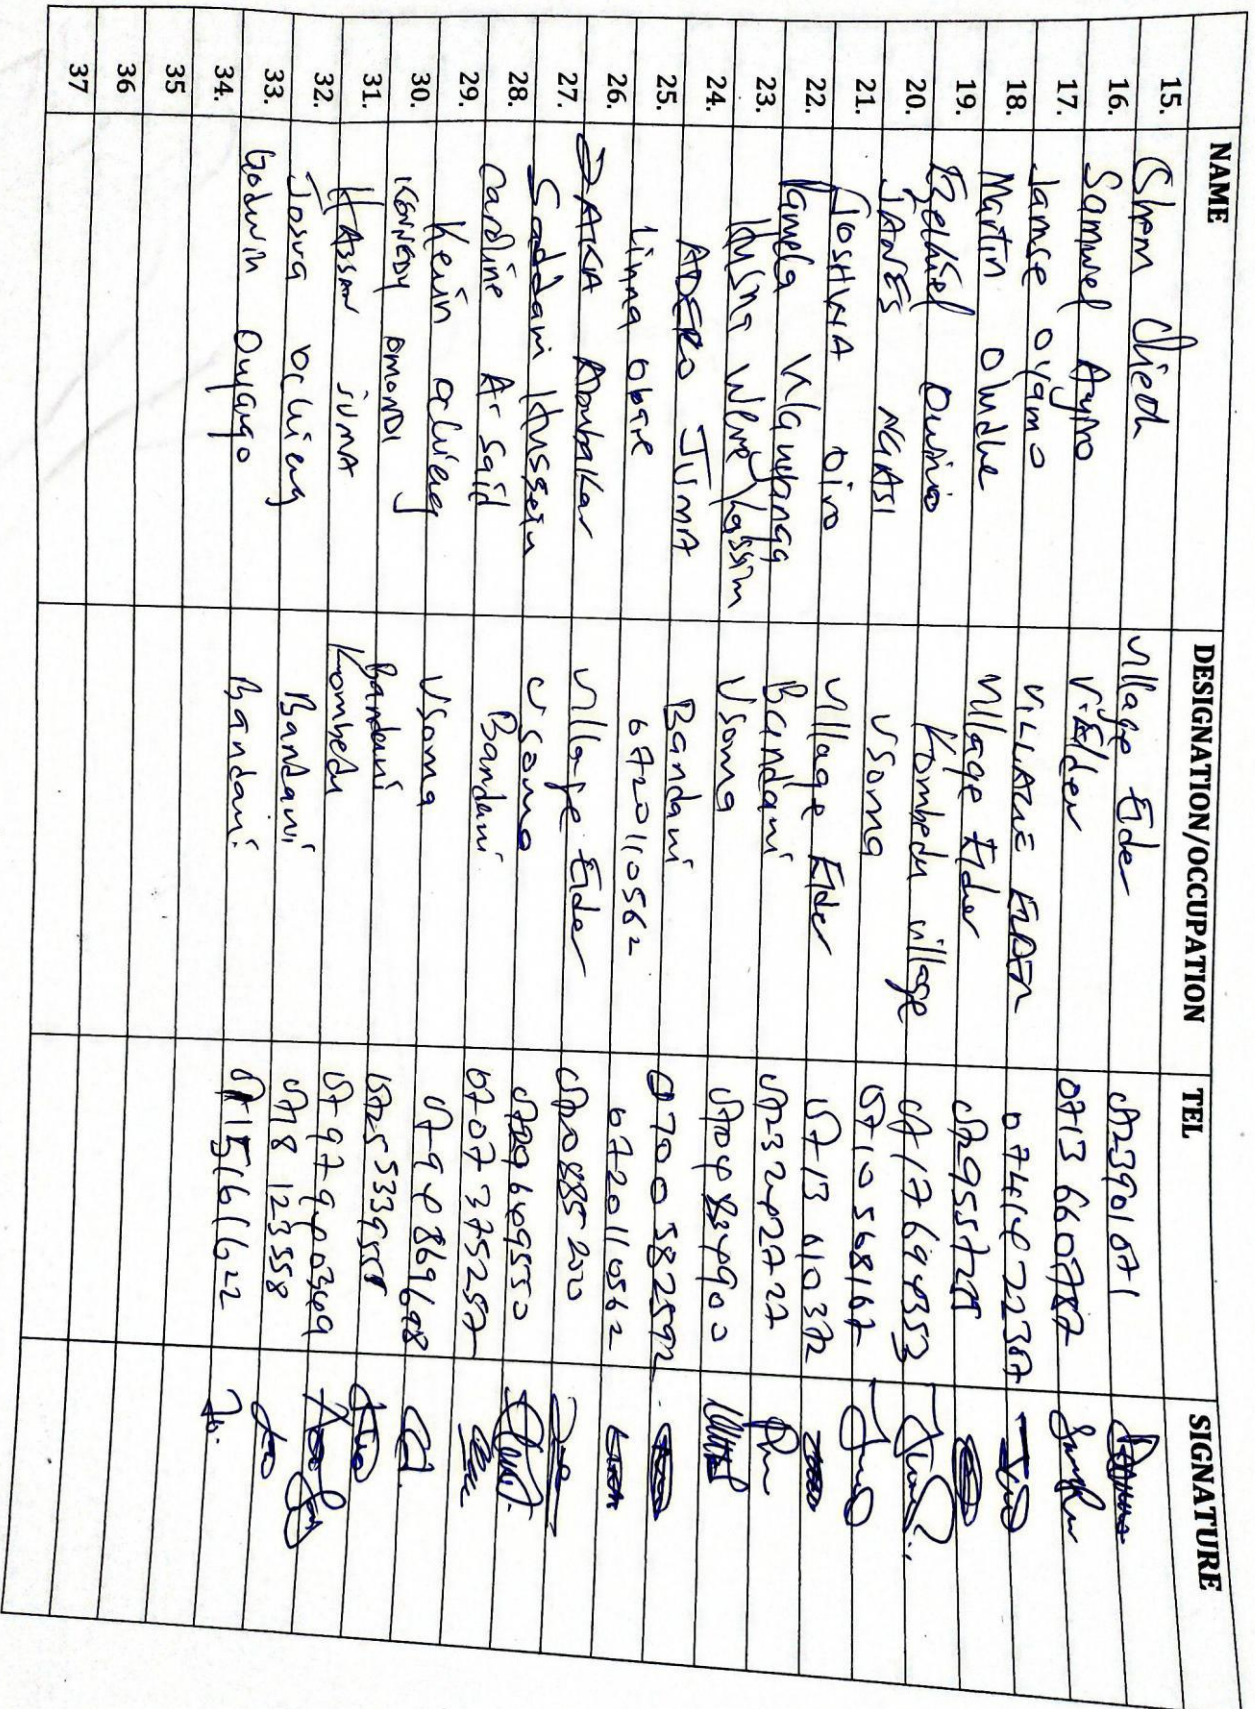 NAME DESIGNATION/OCCUPATION TEL SIGNATURE
15. Shem Village Elder 0723901071
16. Samuel Ayiro V. Elder 0713660787
17. Jamse Oyamo VILLAGE 0741472238
18. Martin Oludhe Village Elder 0729557275
19. Ezekiel Owino Kombedu village 0717694353
20. JANES NGASI Usoma 0710568167
21. JOSHUA OIRO Village Elder 0713610372
22. Pamela Wanyanga Bandani 0723242727
23. Husna Were Kassim Usoma 0704834900
24. ADERO JUMA Bandani 0700382592
25. Linna Obare 0720110562 0720110562
26. ZAKIA Abubakar Village Elder 0720885200
27. Saddam Hussein Usoma 0729649550
28. Caroline A. Said Bandani 0707375257
29. Kevin Ochieng Usoma 0794869698
30. KENNEDY OMONDI Bandani 0725533955
31. HASSAN JUMA Kombedu
32. Josua Ochieng Bandani 0718123558
33. Godwin Onyango Bandani 0715161622
34.
35
36
37